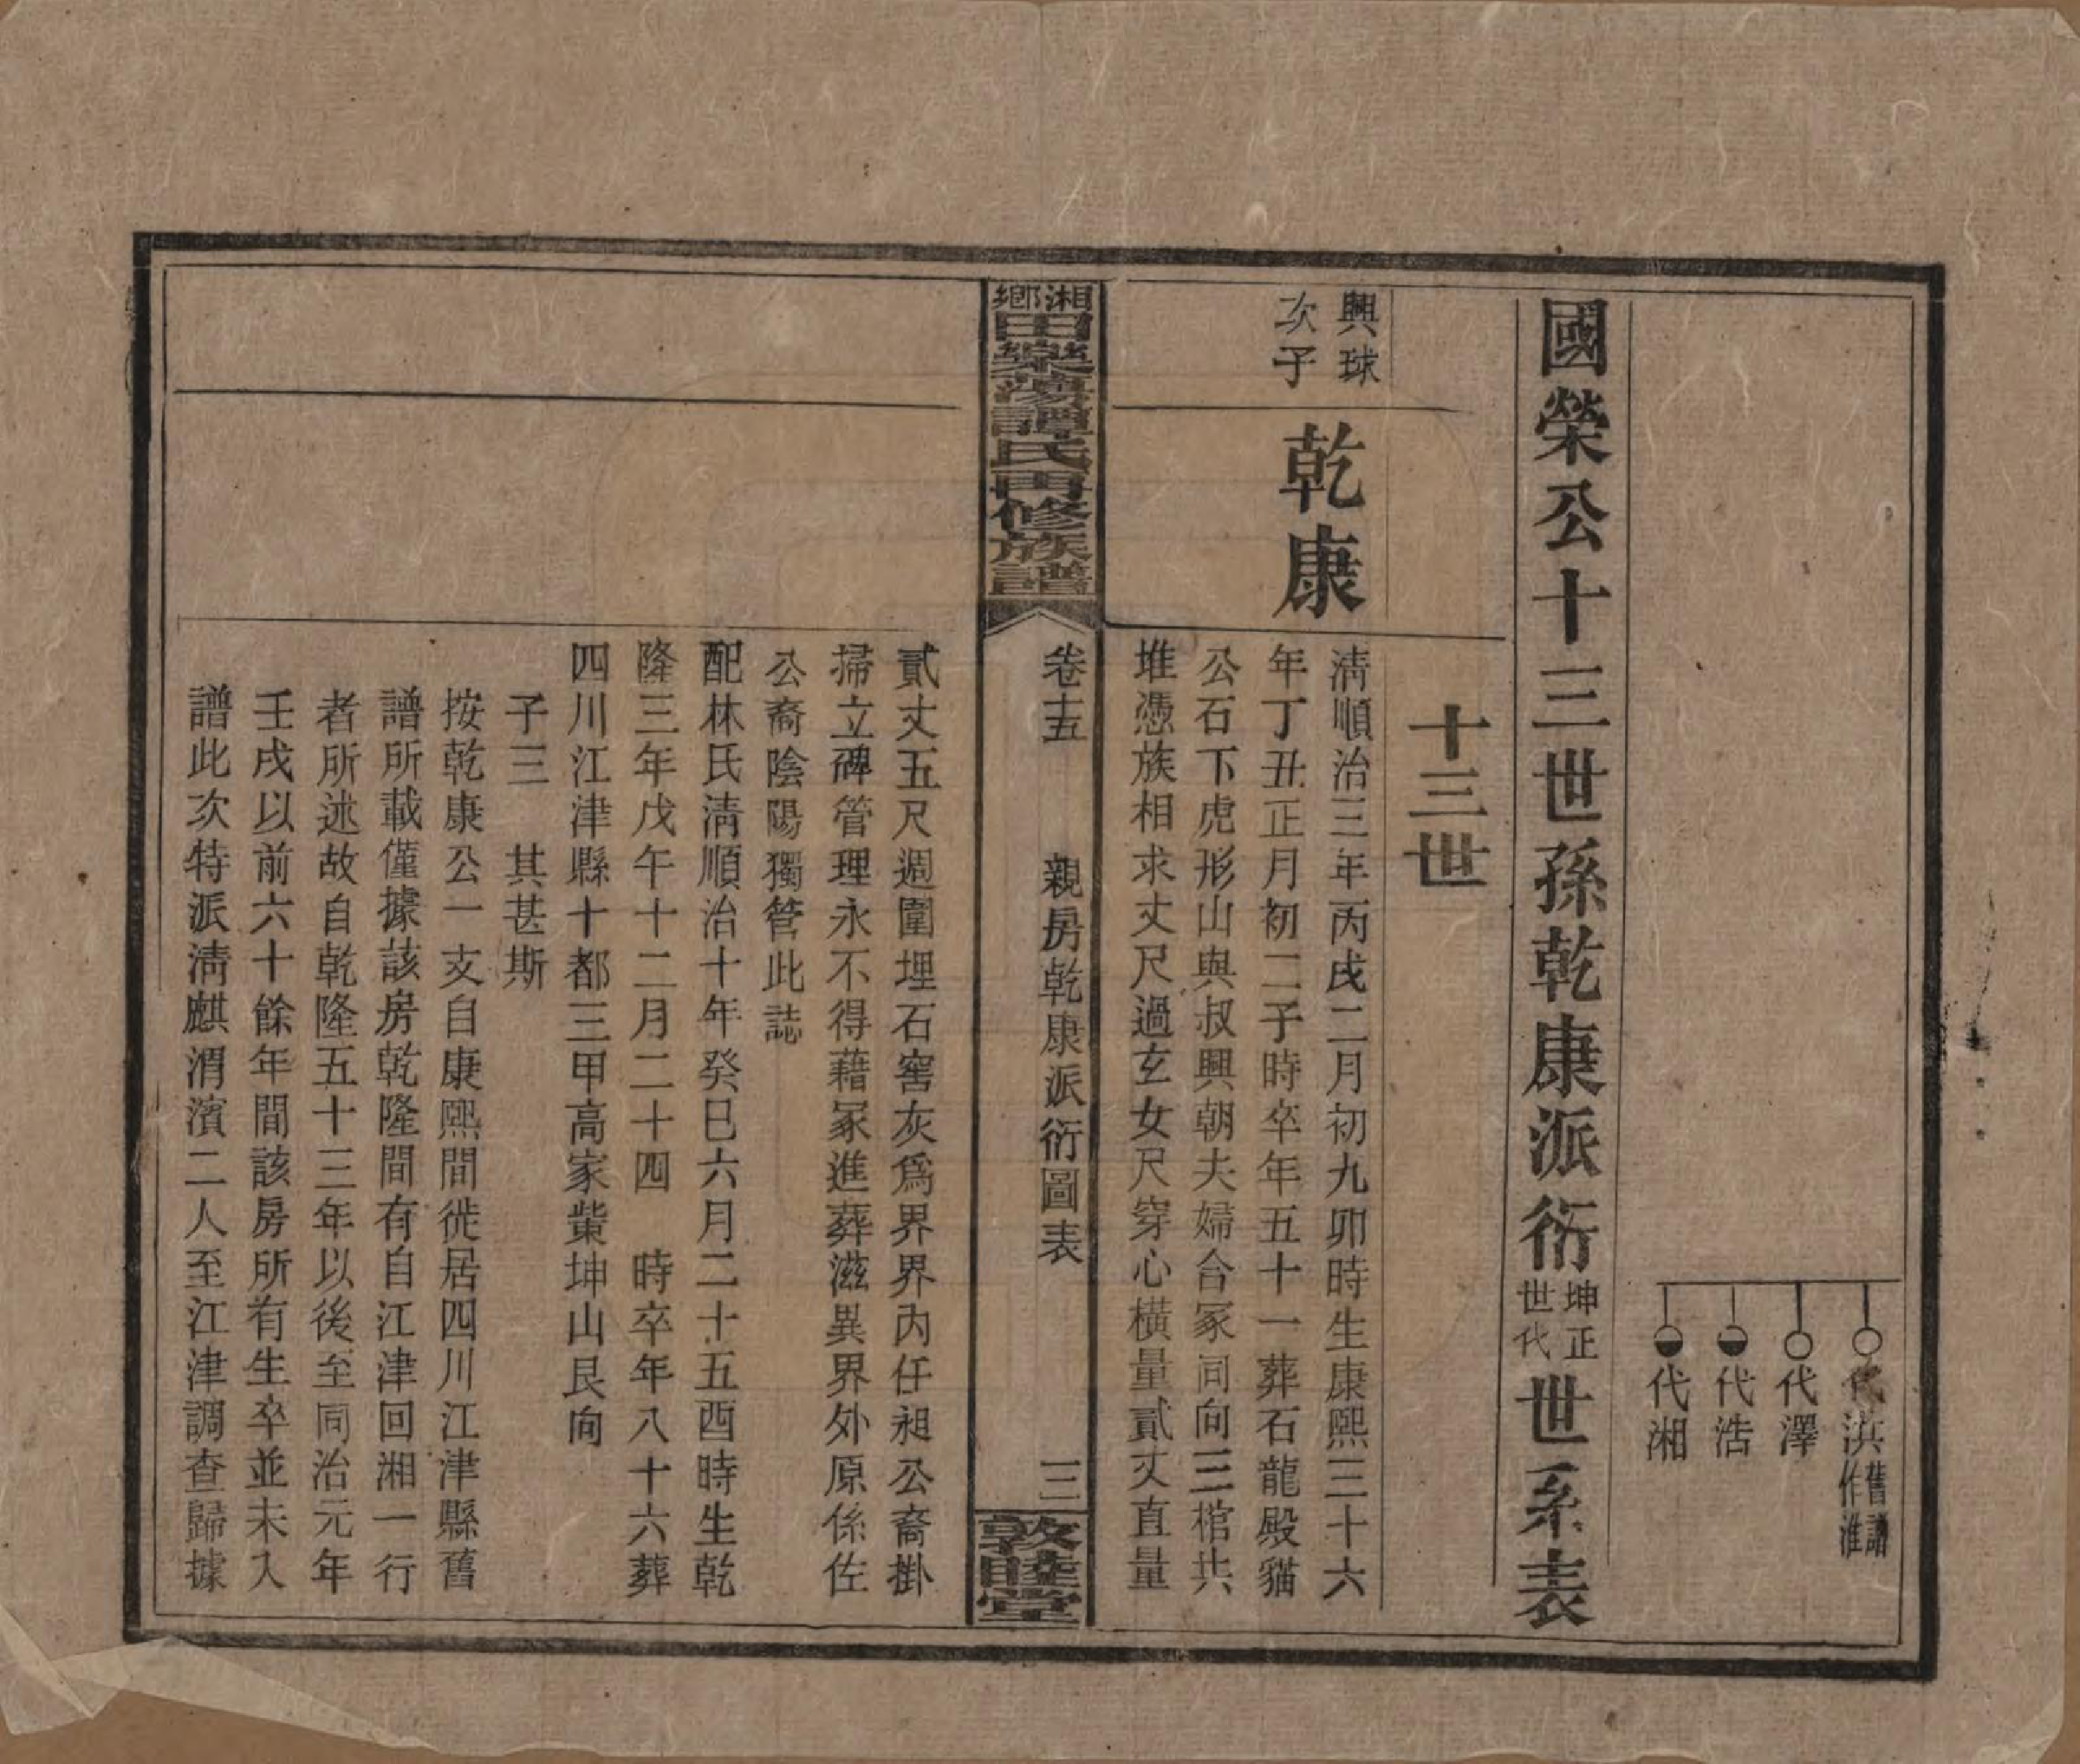 代洪舊譜作淮
代澤
代浩
代湘
國榮公十三世孫乾康派衍坤正世代世系表
十三世
興球次子
乾康
淸順治三年丙戌二月初九卯時生康熙三十六
年丁丑正月初二子時卒年五十一葬石龍殿貓
公石下虎形山與叔興朝夫婦合冢同向三棺共
堆憑族相求丈尺過玄女尺穿心橫量貳丈直量
湘鄉田樂蕩譚氏再修族譜
卷十五
親房乾康派衍圖表
三
敦睦堂
貳丈五尺週圍埋石窖灰爲界界內任昶公裔掛
掃立碑管理永不得藉冢進葬滋異界外原係佐
公裔陰陽獨管此誌
配林氏淸順治十年癸巳六月二十五酉時生乾
隆三年戊午十二月二十四　時卒年八十六葬
四川江津縣十都三甲高家黨坤山艮向
子三　其甚斯
按乾康公一支自康熙間徙居四川江津縣舊
譜所載僅據該房乾隆間有自江津回湘一行
者所述故自乾隆五十三年以後至同治元年
壬戌以前六十餘年間該房所有生卒並未入
譜此次特派淸麒渭濱二人至江津調查歸據